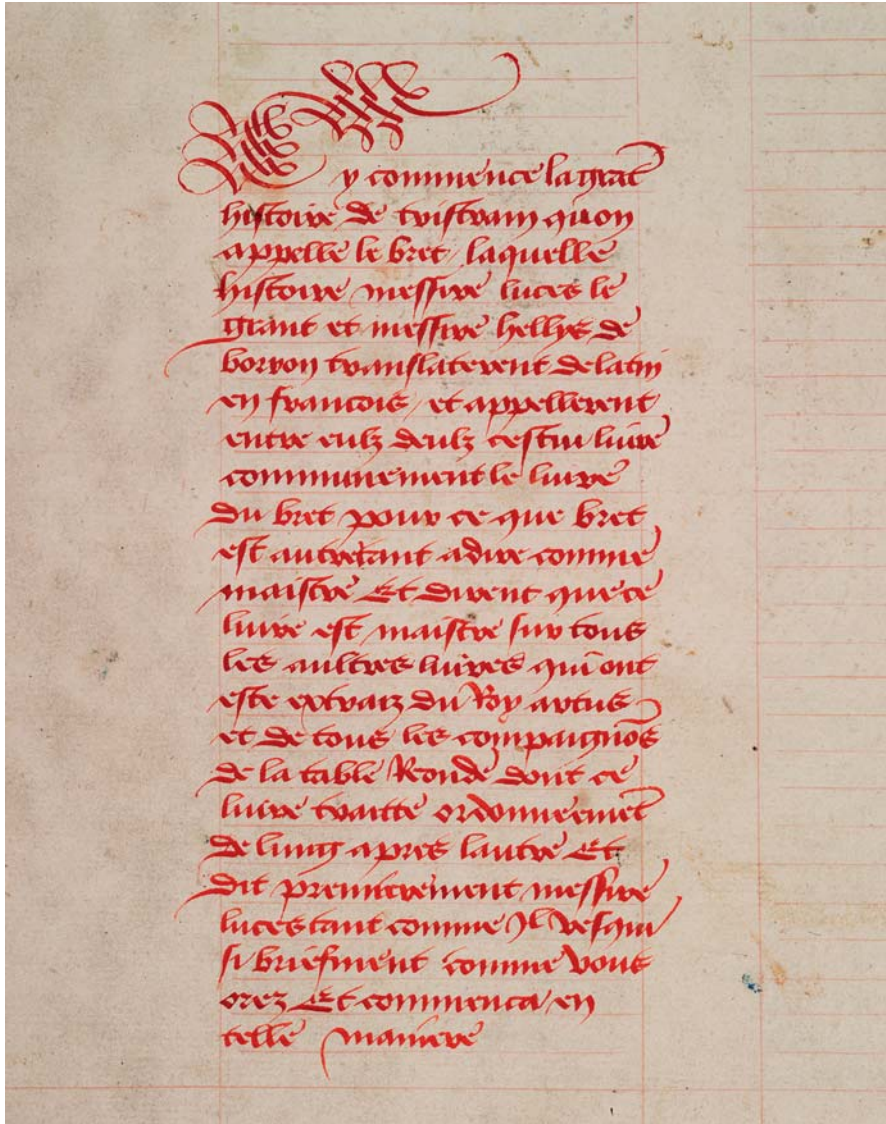 Cy commence la grãt
histoire de tristram quon
appelle le bret / laquelle
histoire messire luces le
grant et messire hellys de
borron translaterent de latin
en francois / et appellerent
entre eulz deulz cestui liure
communement le liure
du bret pour ce que bret
est autretant adire comme
maistre Et dirent que ce
liure est maistre sur tous
les aultres liures qui ont
este extraiz du Roy artus
et de tous les compaignõs
de la table Ronde dont ce
liure traitte ordonneemẽt
de lung apres lautre Et
dit premierement messire
luces tant comme Il vesqui
si briefment comme vous
orez Et commenca en
telle maniere